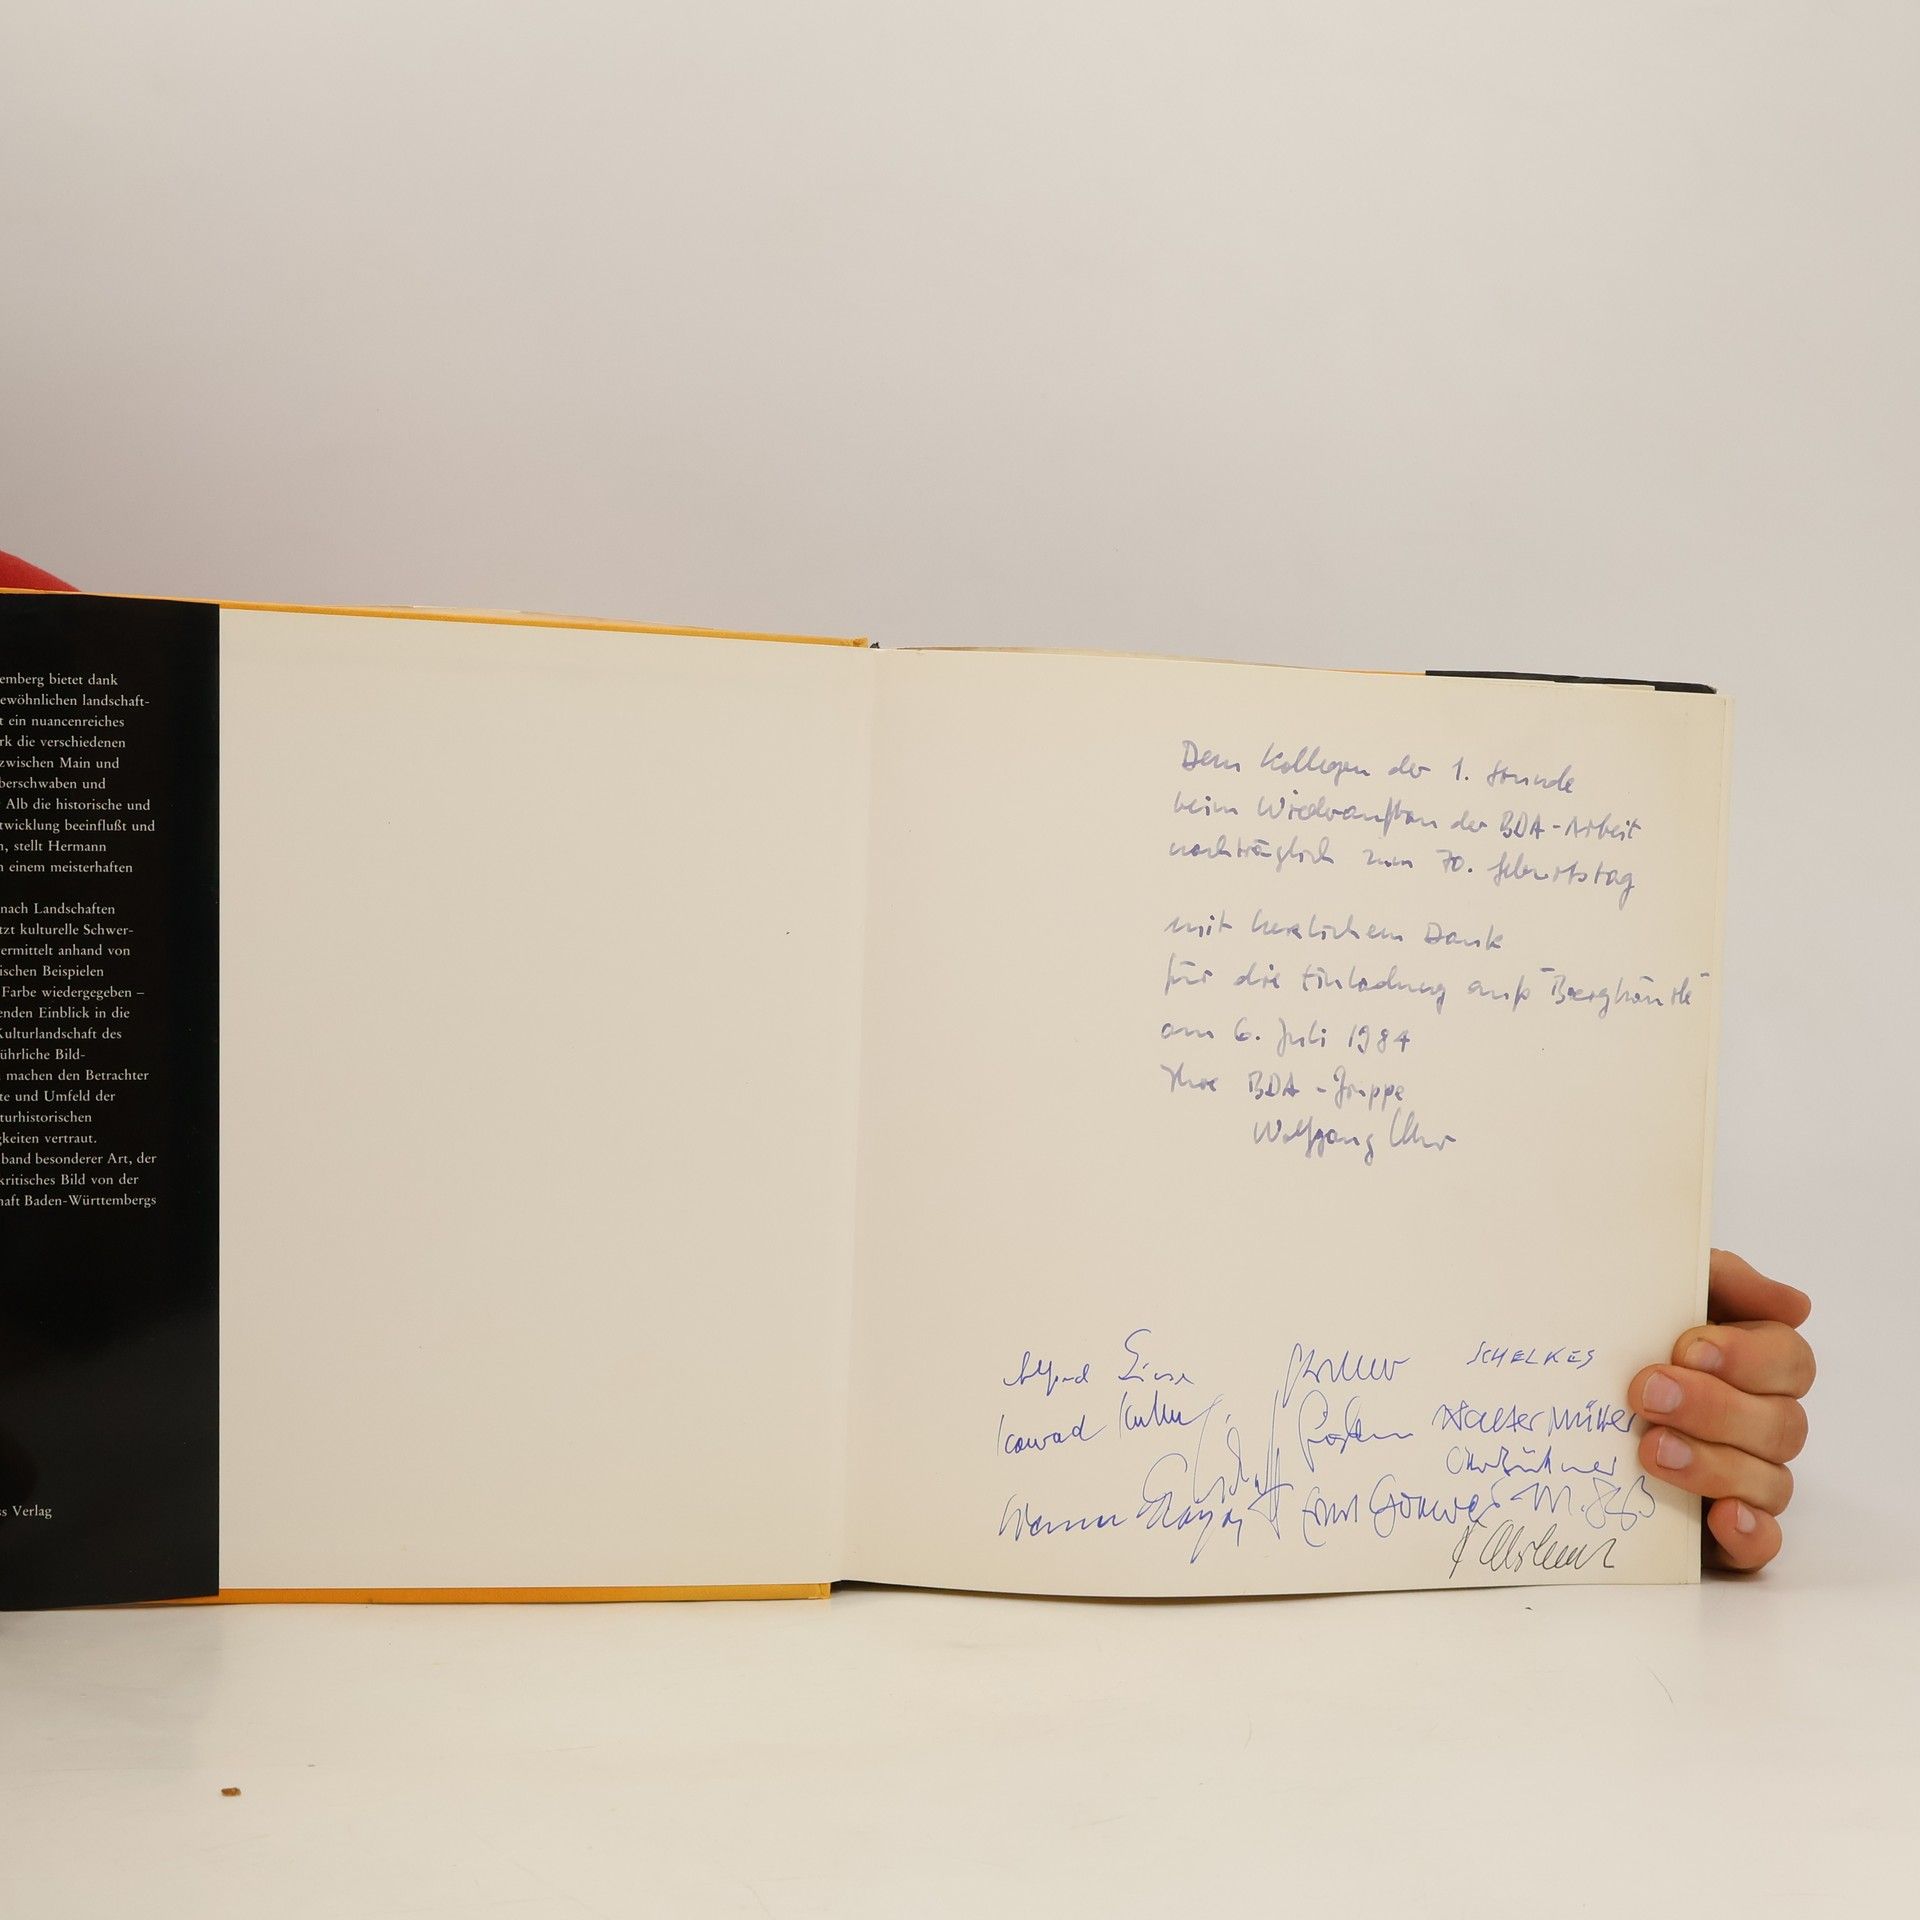 emberg bietet dank
ewöhnlichen landschaft-
t ein nuancenreiches
rk die verschiedenen
zwischen Main und
berschwaben und
Alb die historische und
twicklung beeinflußt und
n, stellt Hermann
n einem meisterhaften
nach Landschaften
tzt kulturelle Schwer-
ermittelt anhand von
ischen Beispielen
Farbe wiedergegeben –
enden Einblick in die
Kulturlandschaft des
ührliche Bild-
machen den Betrachter
te und Umfeld der
turhistorischen
gkeiten vertraut.
band besonderer Art, der
kritisches Bild von der
haft Baden-Württembergs
ss Verlag
Dem Kollegen der 1. Stunde
beim Wiederaufbau der BDA-Arbeit
nachträglich zum 70. Geburtstag
mit herzlichem Dank
für die Einladung aufs "Berghäusle"
am 6. Juli 1984
Ihre BDA-Gruppe
Wolfgang
Alfred
SCHELKES
Konrad
Walter Müller
Werner
Ernst